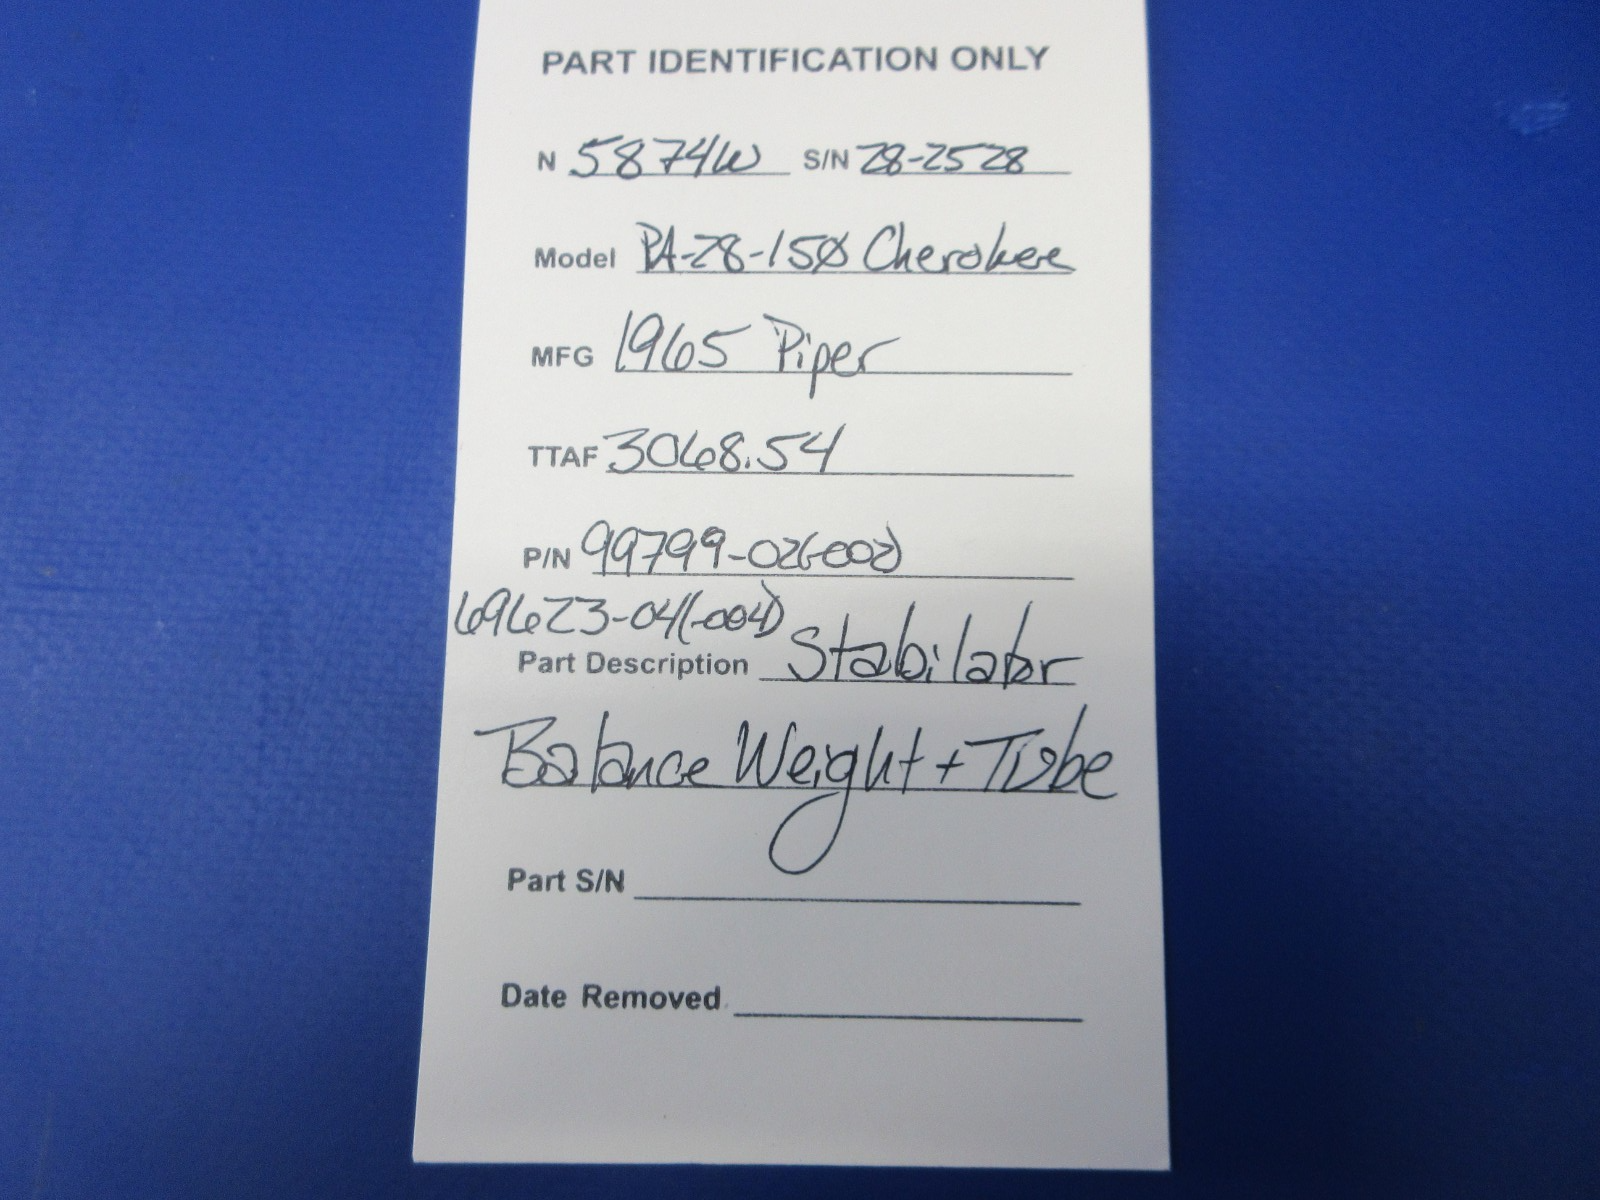 PART IDENTIFICATION ONLY
N 5874W S/N 28-2528
Model PA-28-150 Cherokee
MFG 1965 Piper
TTAF 3068.54
P/N 99799-02(-002)
69623-04(-004)
Part Description Stabilator
Balance Weight + Tube
Part S/N
Date Removed